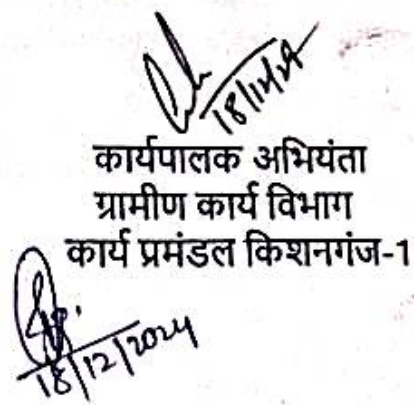 18/12/24
कार्यपालक अभियंता
ग्रामीण कार्य विभाग
कार्य प्रमंडल किशनगंज-1
18/12/2024